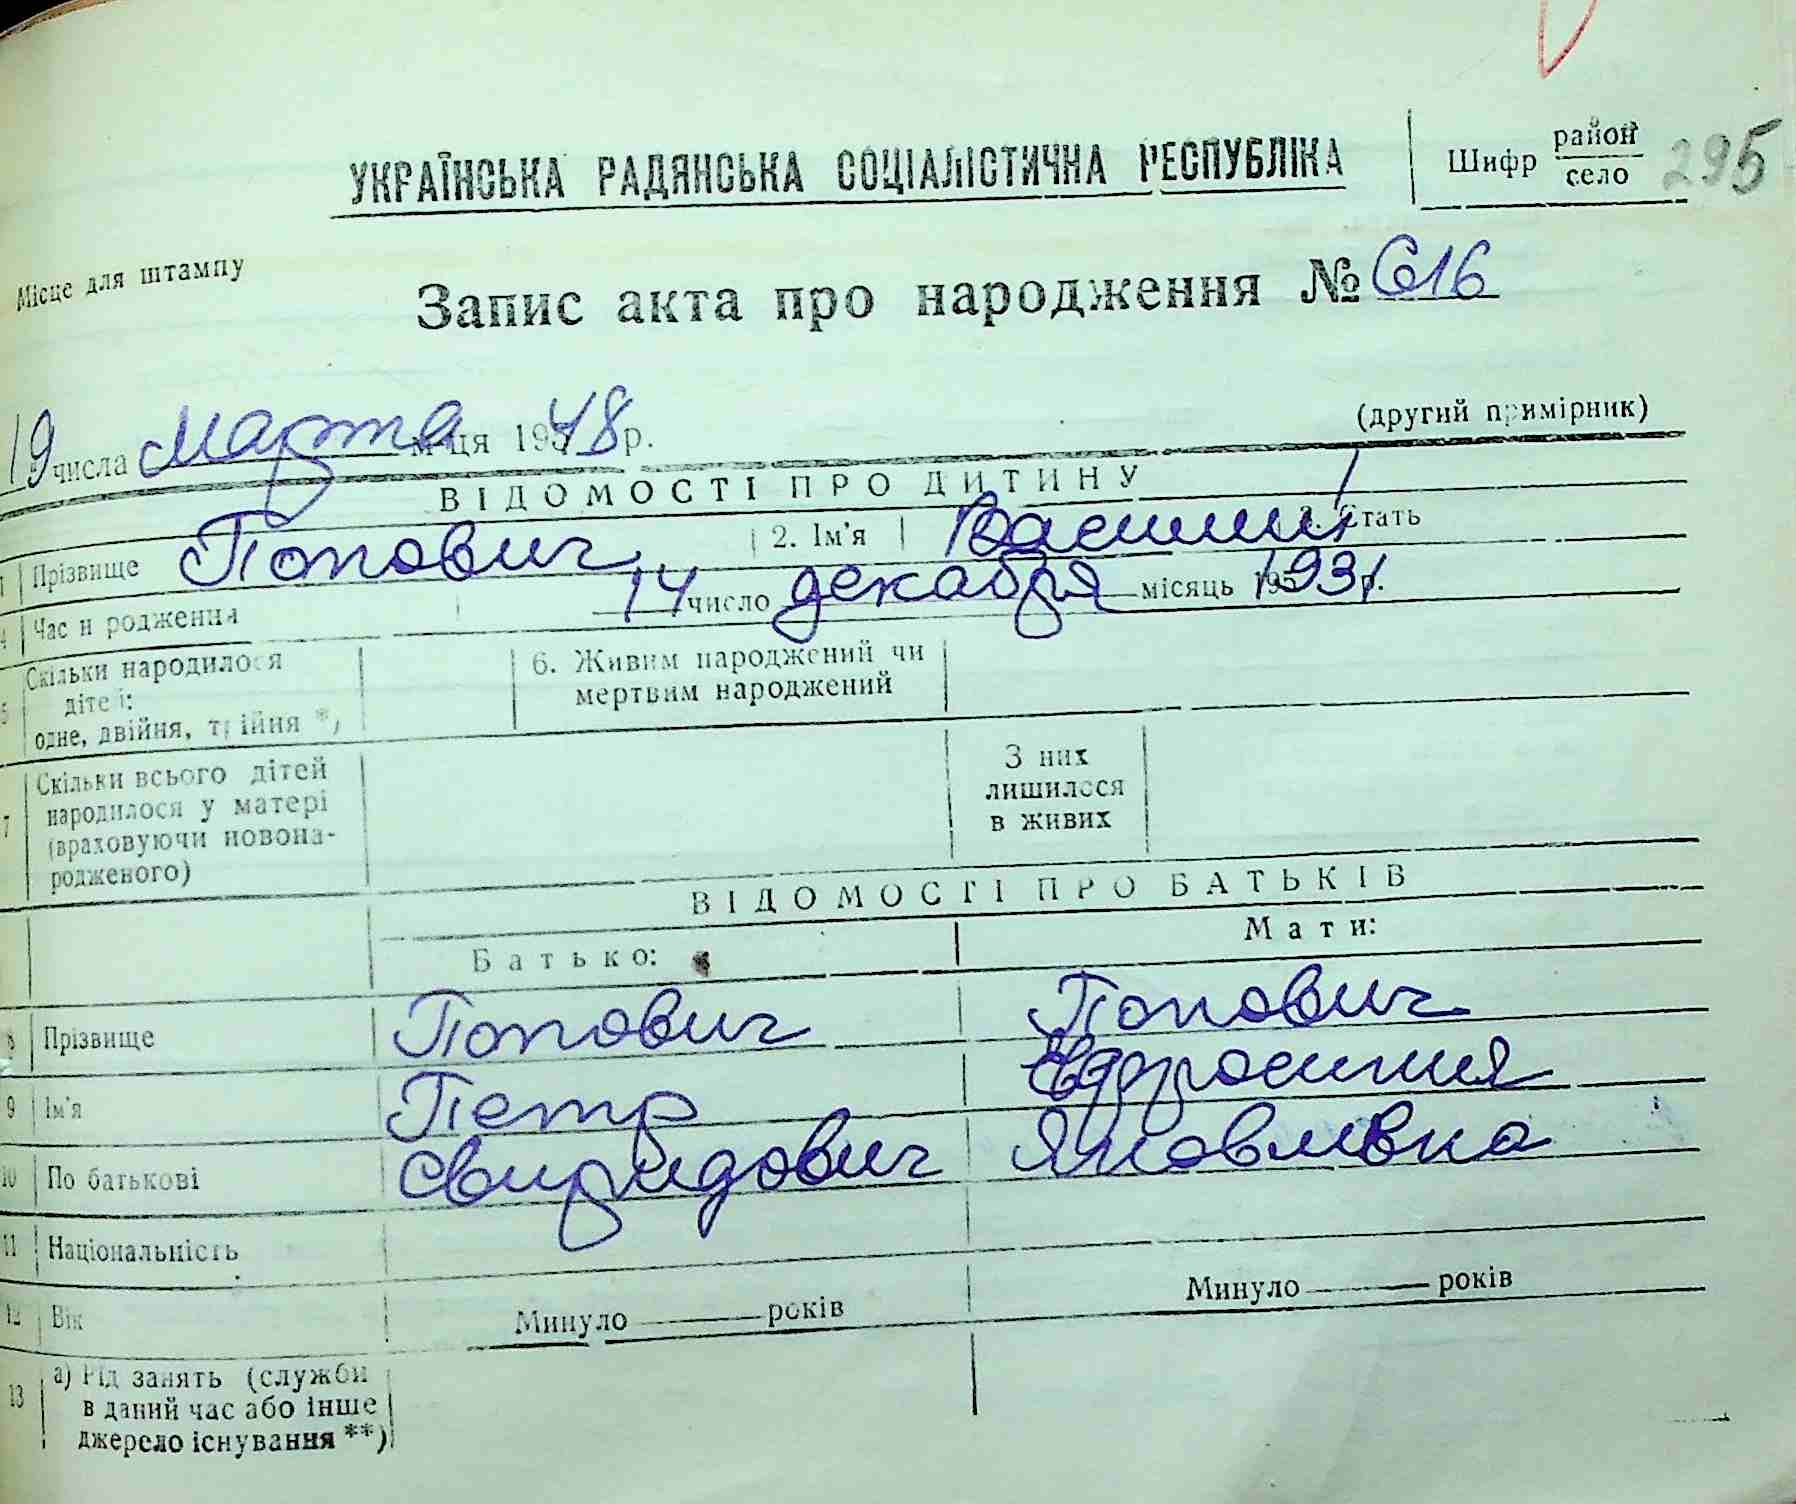 УКРАЇНСЬКА РАДЯНСЬКА СОЦІАЛІСТИЧНА РЕСПУБЛІКА
Шифр район село 295
Місце для штампу
Запис акта про народження № 616
19 числа марта м-ця 195 48 р.
(другий примірник)
ВІДОМОСТІ ПРО ДИТИНУ
1 Прізвище Попович 2. Ім'я Василий 3. Стать
4 Час народження 14 число декабря місяць 195 1931 р.
5 Скільки народилося дітей: одне, двійня, трійня *)
6. Живим народжений чи мертвим народжений
7 Скільки всього дітей народилося у матері (враховуючи новонародженого)
З них лишилося в живих
ВІДОМОСТІ ПРО БАТЬКІВ
Батько: Мати:
8 Прізвище Попович Попович
9 Ім'я Петр Ефросиния
10 По батькові Свиридович Яковливна
11 Національність
12 Вік Минуло років Минуло років
13 а) Рід занять (служби в даний час або інше джерело існування **)